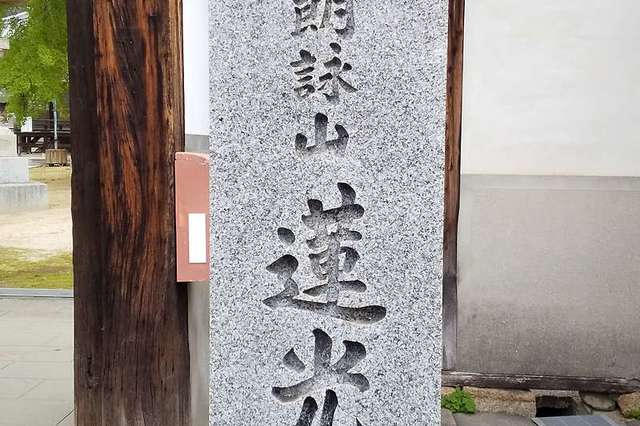 朗詠山
蓮光